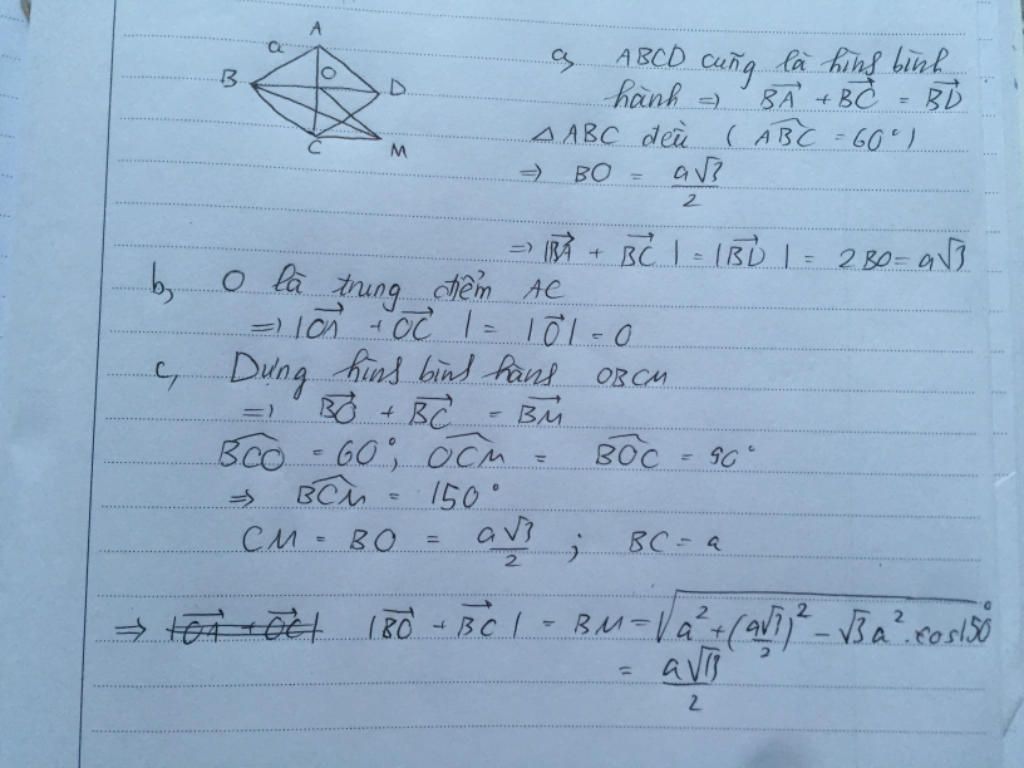 A
a
O
B
D
C
M
a, ABCD cũng là hình bình
hành => $\overrightarrow{BA} + \overrightarrow{BC} = \overrightarrow{BD}$
△ABC đều ($\widehat{ABC}$ = 60°)
=> BO = $\frac{a\sqrt{3}}{2}$
=> $|\overrightarrow{BA} + \overrightarrow{BC}| = |\overrightarrow{BD}|$ = 2BO = $a\sqrt{3}$
b, O là trung điểm AC
=> $|\overrightarrow{OA} + \overrightarrow{OC}| = |\overrightarrow{O}|$ = 0
c, Dựng hình bình hành OBCM
=> $\overrightarrow{BO} + \overrightarrow{BC} = \overrightarrow{BM}$
$\widehat{BCO}$ = 60°; $\widehat{OCM}$ = $\widehat{BOC}$ = 90°
=> $\widehat{BCM}$ = 150°
CM = BO = $\frac{a\sqrt{3}}{2}$ ; BC = a
=> ~~$|\overrightarrow{OA} + \overrightarrow{OC}|$~~ $|\overrightarrow{BO} + \overrightarrow{BC}|$ = BM = $\sqrt{a^2 + (\frac{a\sqrt{3}}{2})^2 - \sqrt{3}a^2 . cos150°}$
= $\frac{a\sqrt{13}}{2}$